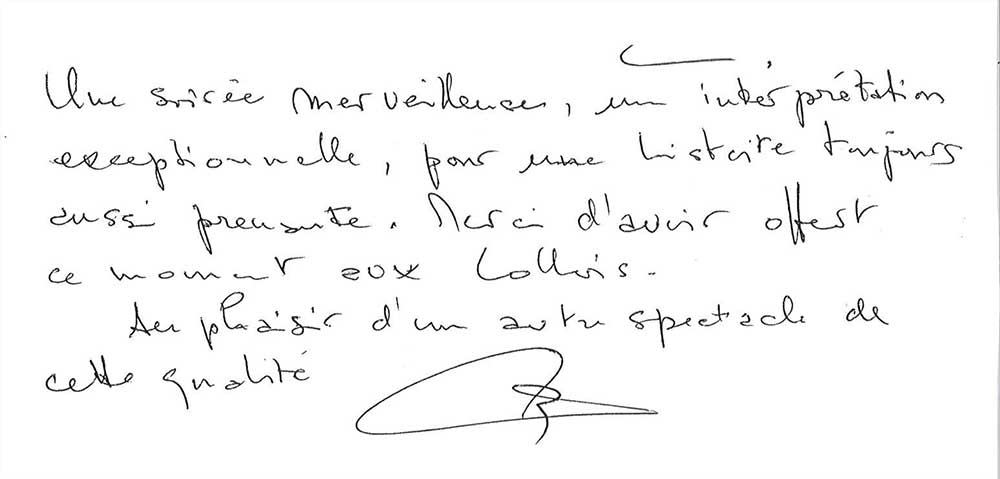 Une soirée merveilleuse, un intérprétation
exceptionnelle, pour une histoire toujours
aussi prenante. Merci d'avoir offert
ce moment aux
Au plaisir d'un autre spectacle de
cette qualité